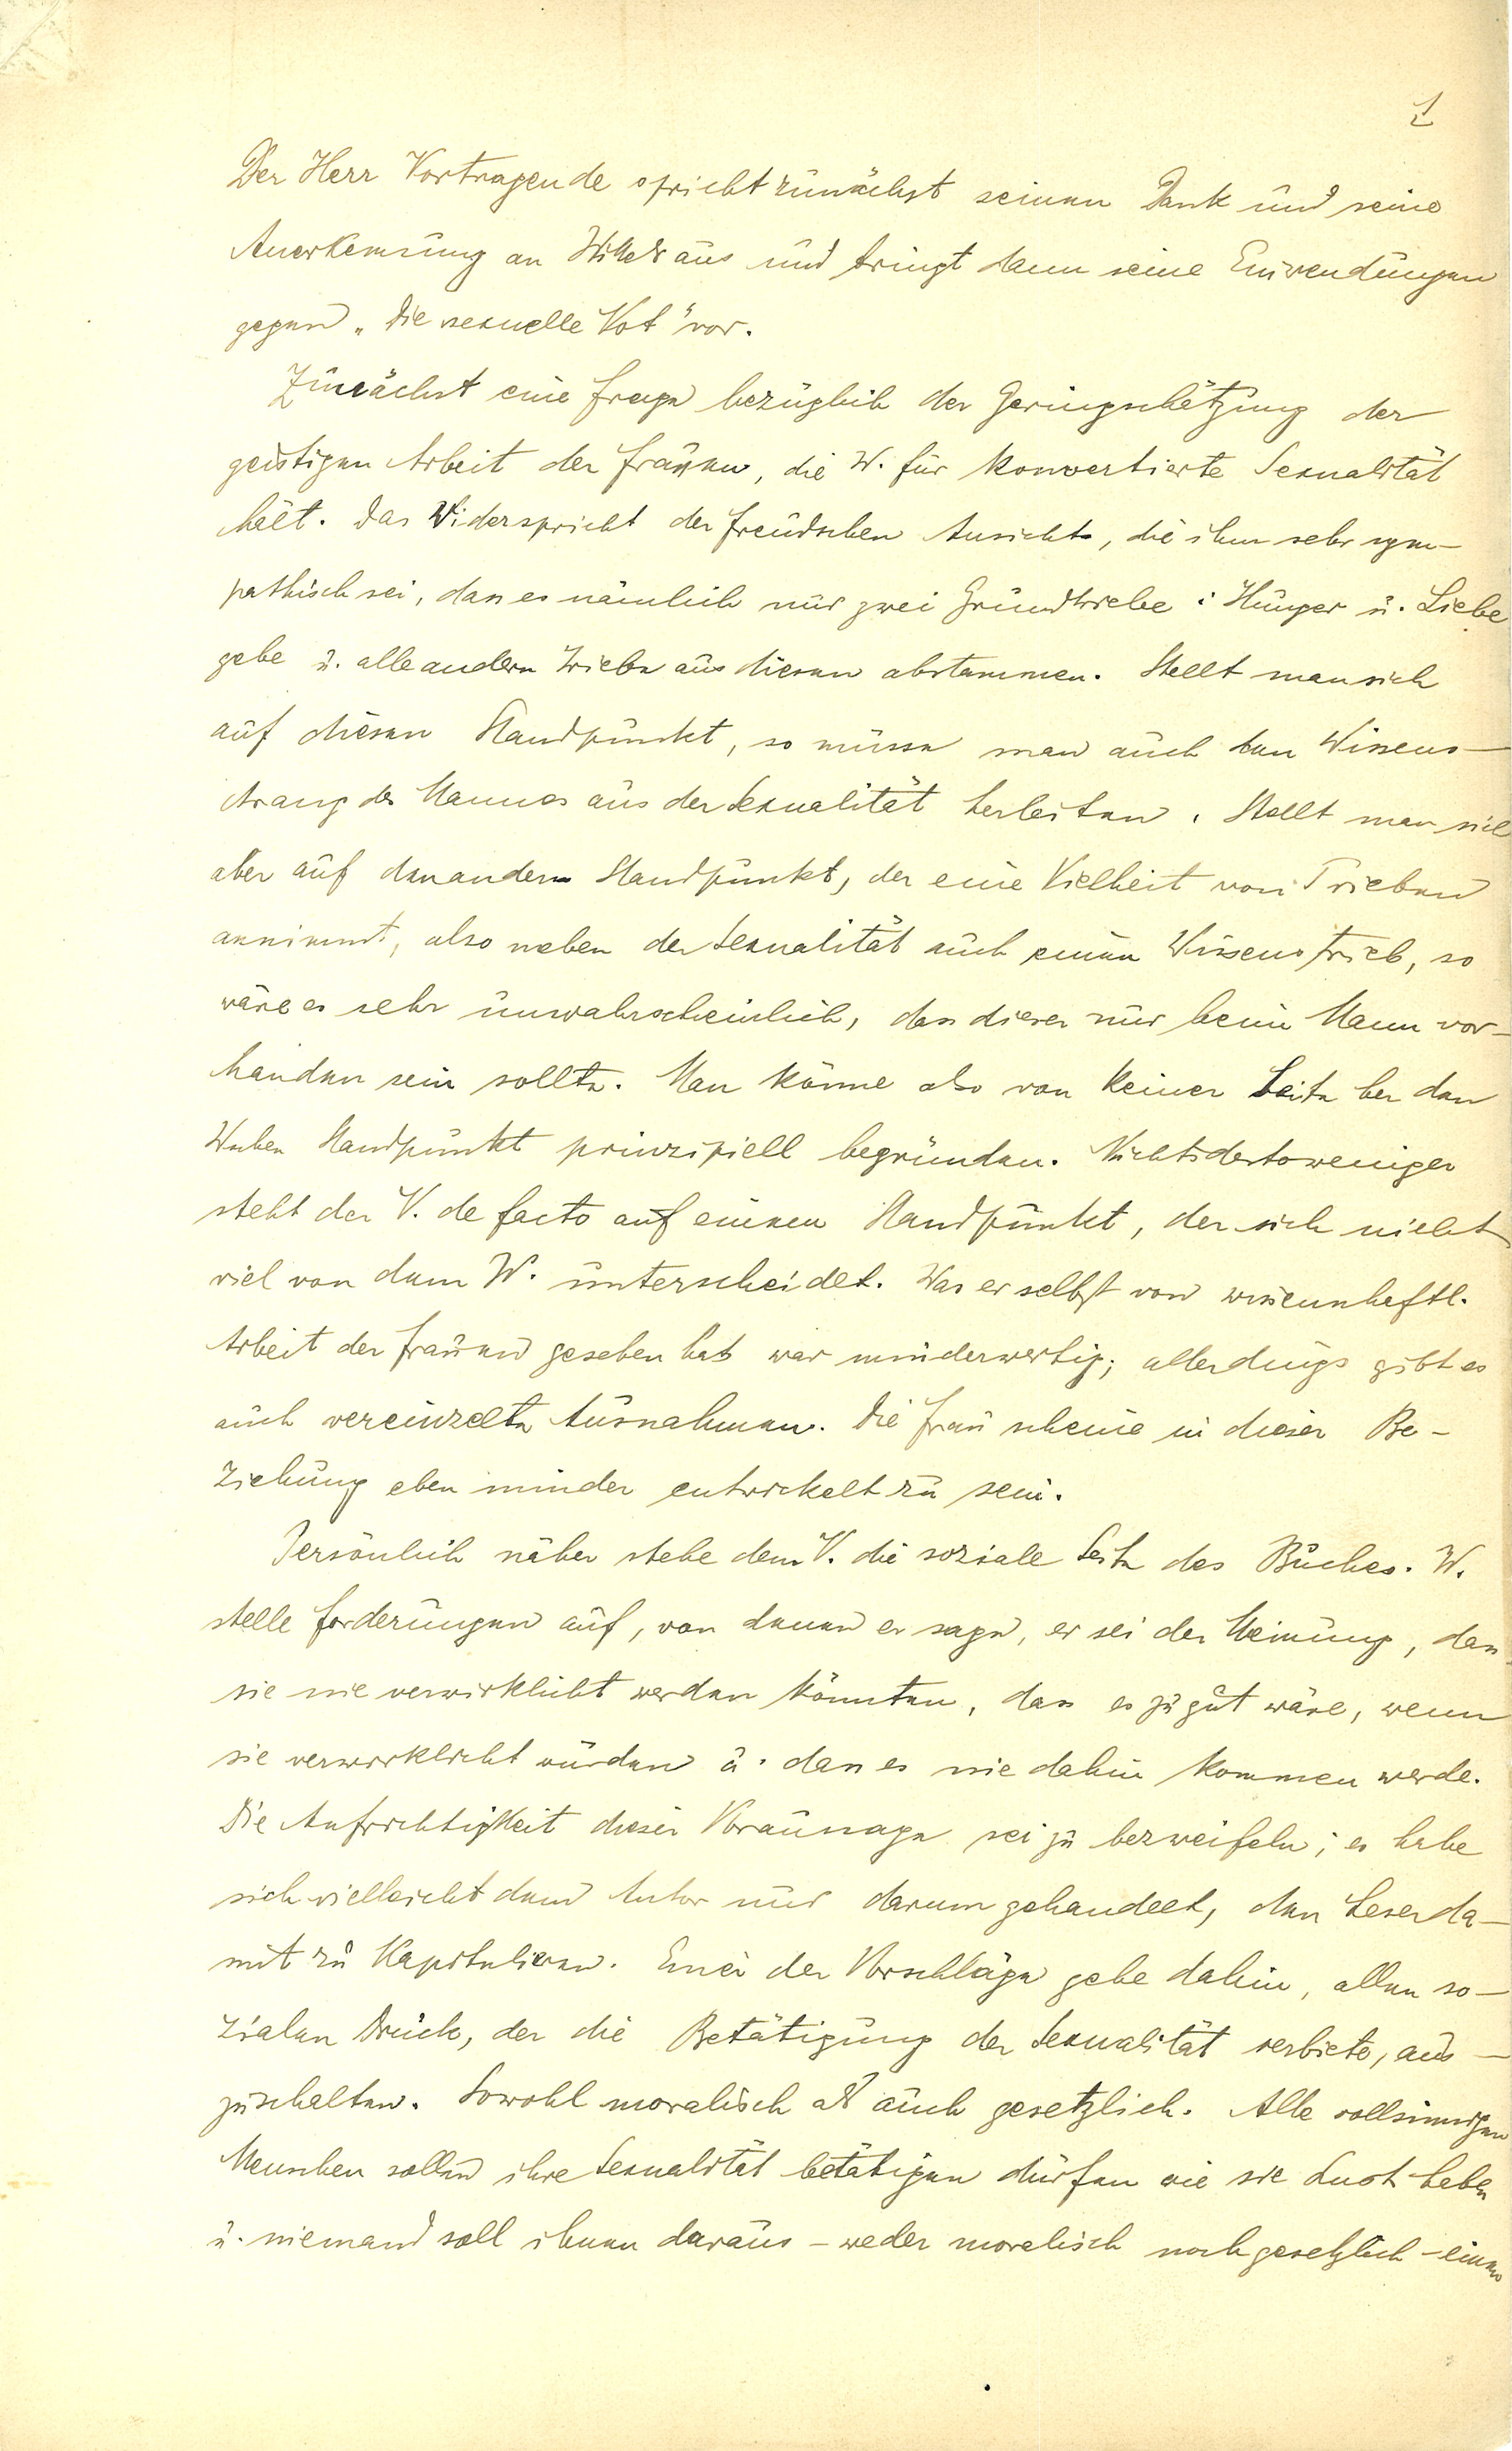 1
Der Herr Vortragende spricht zunächst seinen Dank und seine
Anerkennung an Wittels aus und bringt dann seine Einwendungen
gegen „Die sexuelle Not" vor.
Zunächst eine Frage bezüglich der Geringschätzung der
geistigen Arbeit der Frauen, die W. für konvertierte Sexualität
hält. Das Widerspricht der Freudschen Ansicht, die ihm sehr sym-
pathisch sei, dass es nämlich nur zwei Grundtriebe: Hunger u. Liebe
gebe u. alle andern Triebe aus diesen abstammen. Stellt man sich
auf diesen Standpunkt, so müsse man auch den Wissens-
drang des Mannes aus der Sexualität herleiten. Stellt man sich
aber auf den andern Standpunkt, der eine Vielheit von Trieben
annimmt, also neben der Sexualität auch einen Wissenstrieb, so
wäre es sehr unwahrscheinlich, dass dieser nur beim Mann vor-
handen sein sollte. Man könne also von keiner Seite her den
Standpunkt prinzipiell begründen. Nichtsdestoweniger
steht der V. de facto auf einem Standpunkt, der sich nicht
viel von dem W. unterscheidet. Was er selbst von wissenschaftl.
Arbeit der Frauen gesehen hat war minderwertig; allerdings gibt es
auch vereinzelte Ausnahmen. Die Frau scheine in dieser Be-
ziehung eben minder entwickelt zu sein.
Persönlich näher stehe dem V. die soziale Seite des Buches. W.
stelle Forderungen auf, von denen er sage, er sei der Meinung, dass
sie nie verwirklicht werden könnten, dass es zu gut wäre, wenn
sie verwirklicht würden u. dass es nie dahin kommen werde.
Die Aufrichtigkeit dieser Voraussage sei zu bezweifeln; es habe
sich vielleicht dem Autor nur darum gehandelt, den Leser da-
mit zu Kapitulieren. Einer der Vorschläge gehe dahin, allen so-
zialen Druck, der die Betätigung der Sexualität verbiete, aus-
zuschalten. Sowohl moralisch als auch gesetzlich. Alle vollsinnigen
Menschen sollen ihre Sexualität betätigen dürfen wie sie Lust haben
u. niemand soll ihnen daraus - weder moralisch noch gesetzlich - einen